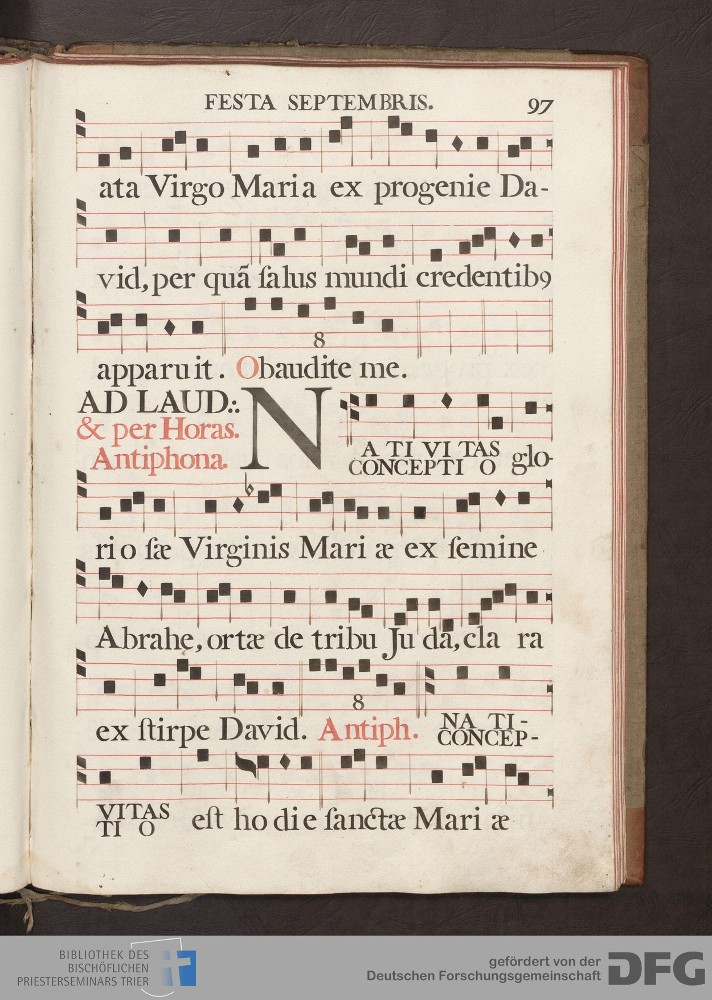 FESTA SEPTEMBRIS. 97
ata Virgo Maria ex progenie Da-
vid, per quã ſalus mundi credentibꝰ
8
apparuit. Obaudite me.
AD LAUD.:
& per Horas.
Antiphona.
NATIVITAS
CONCEPTIO glo-
rioſæ Virginis Mariæ ex ſemine
Abrahe, ortæ de tribu Juda, clara
8
ex ſtirpe David. Antiph. NATI-
CONCEP-
VITAS
TIO eſt hodie ſanctæ Mariæ
BIBLIOTHEK DES
BISCHÖFLICHEN
PRIESTERSEMINARS TRIER
gefördert von der
Deutschen Forschungsgemeinschaft DFG